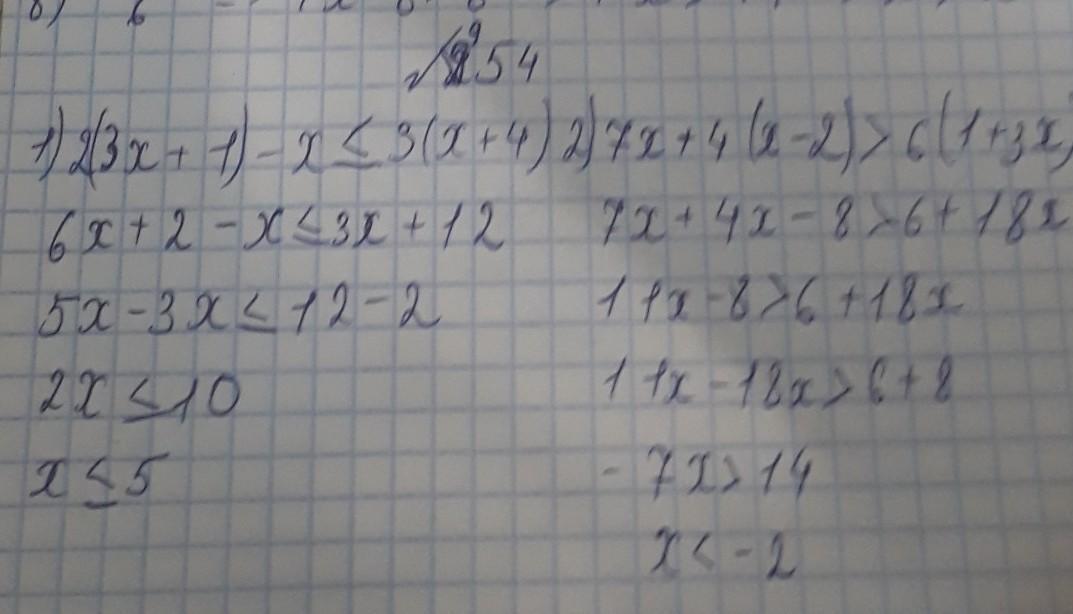 √954
1) 2(3x + 1) - x ≤ 3(x + 4) 2) 7x + 4(x - 2) > 6(1 + 3x)
6x + 2 - x ≤ 3x + 12 7x + 4x - 8 > 6 + 18x
5x - 3x ≤ 12 - 2 11x - 8 > 6 + 18x
2x ≤ 10 11x - 18x > 6 + 8
x ≤ 5 - 7x > 14
x < - 2